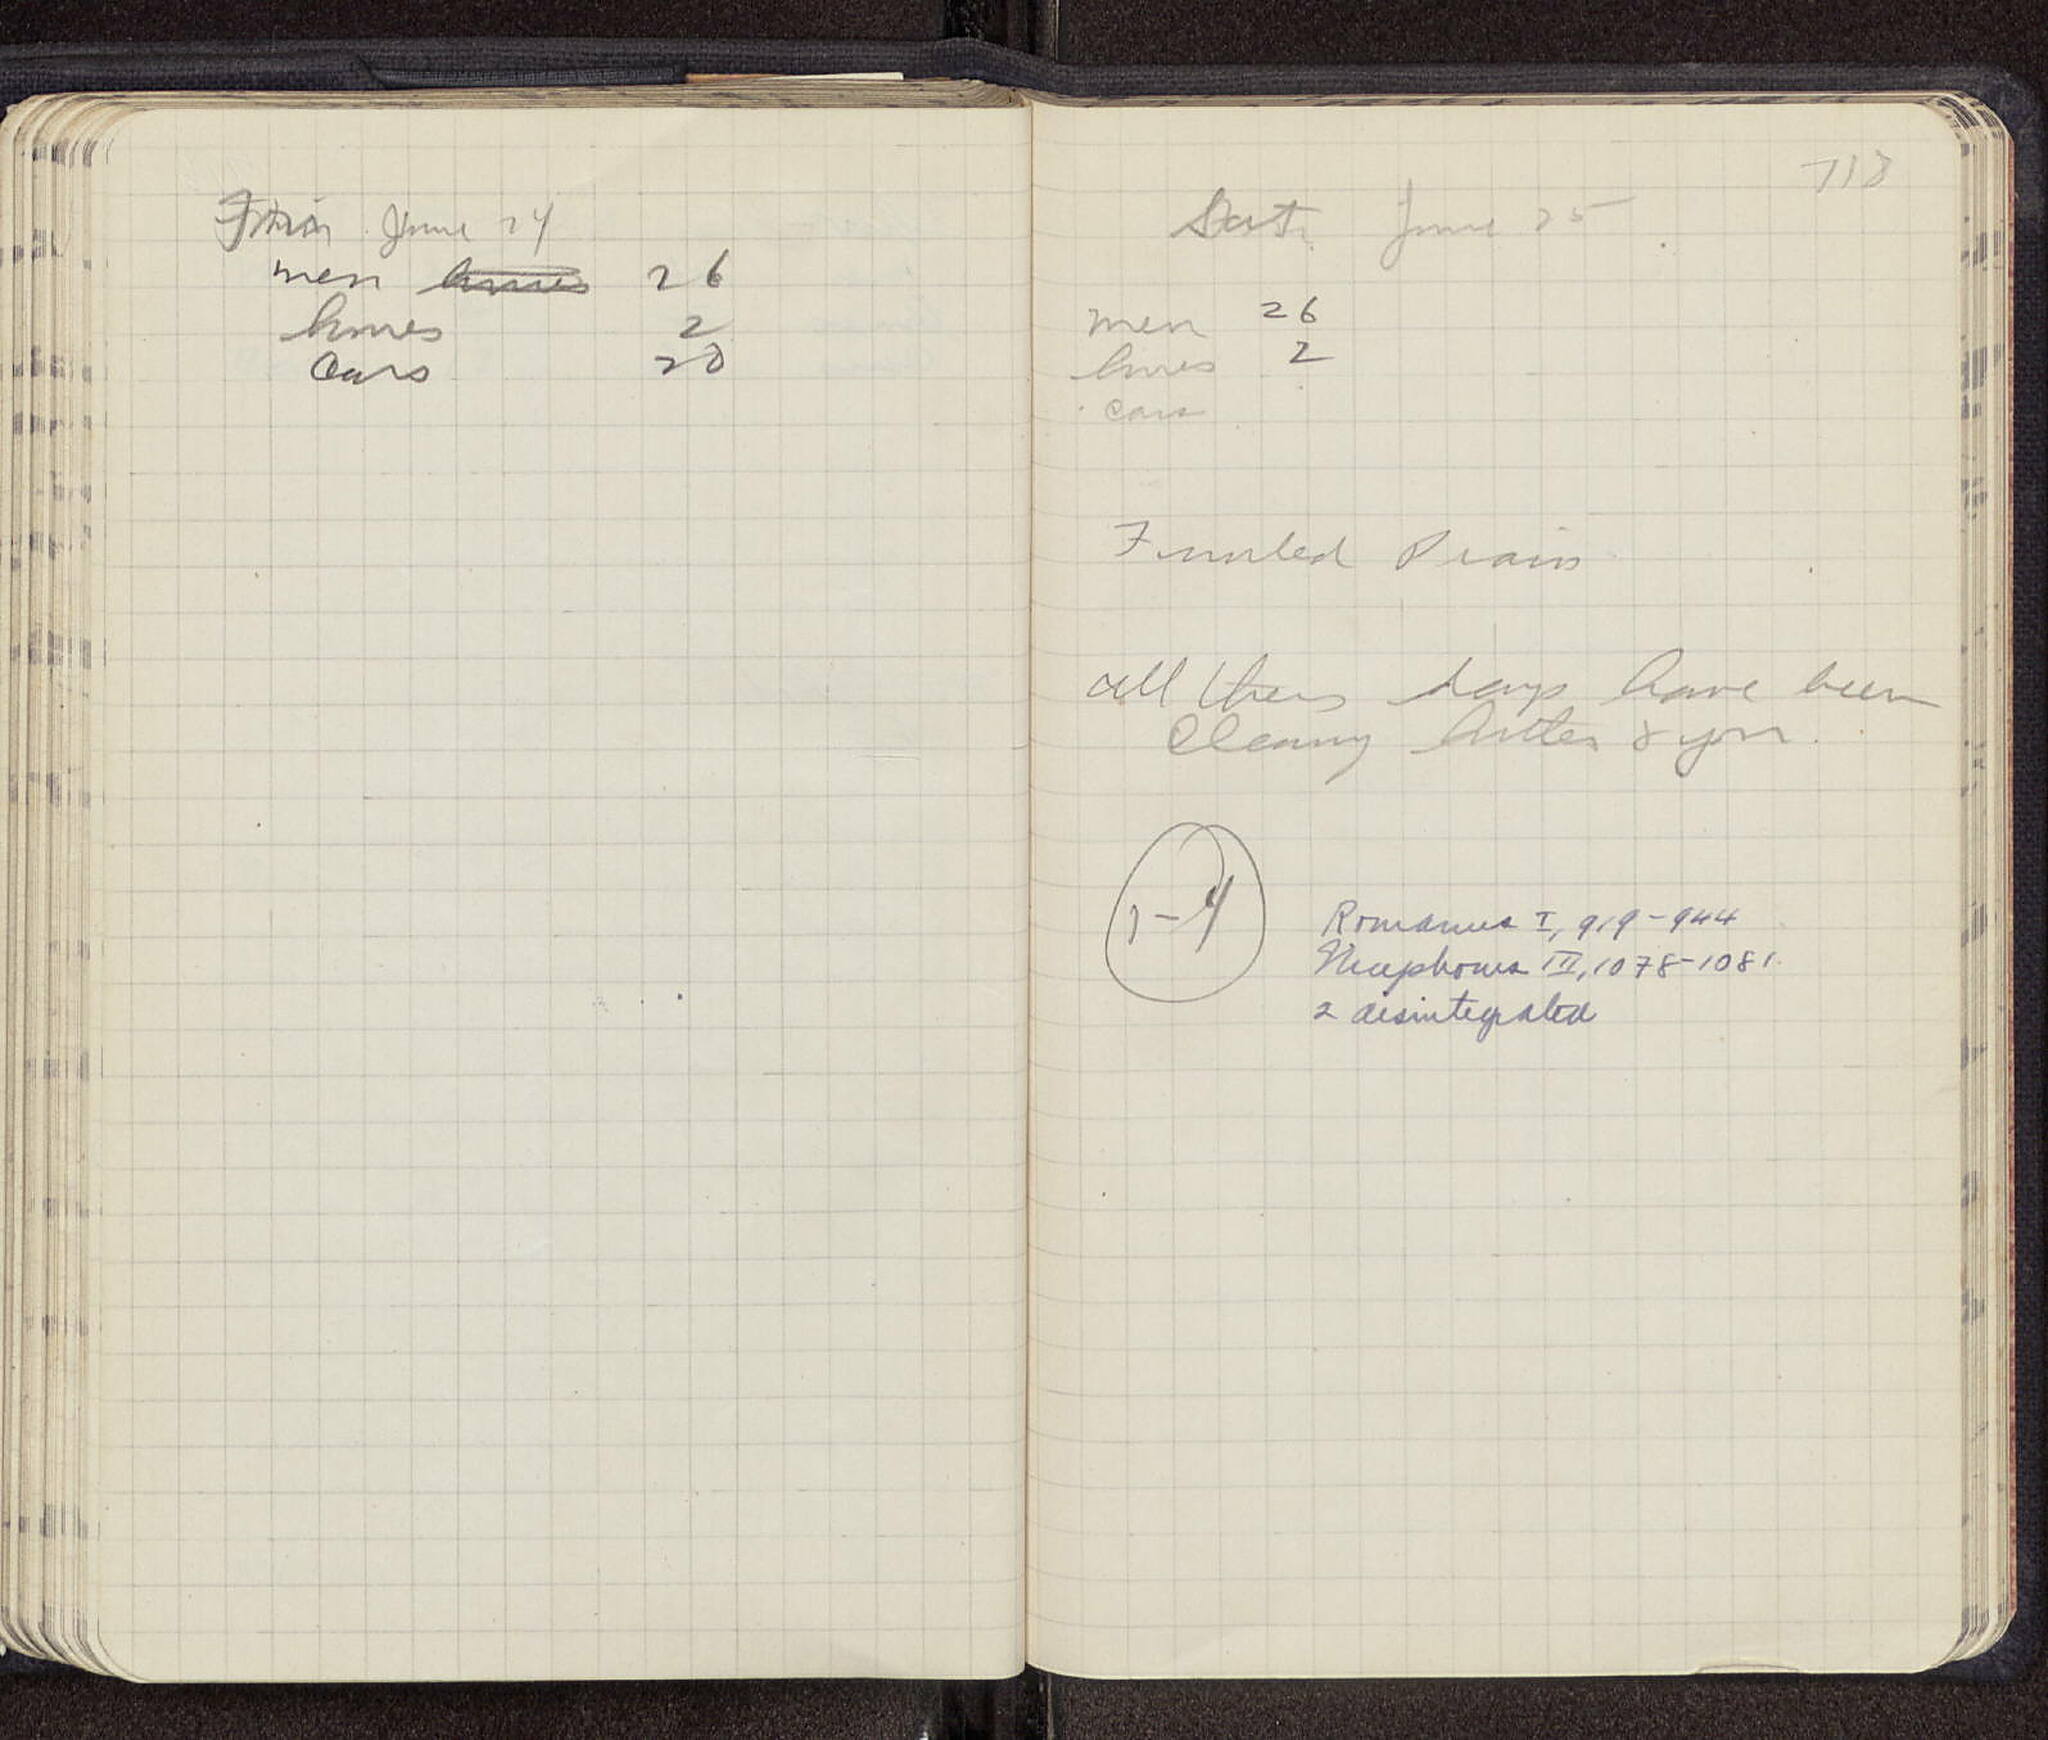 June 24
men 26
horses 2
cars 20
718
Sat. June 25
men 26
horses 2
cars
Finished Drain
all these days have been
cleaning &
1-4
Romanus I, 919-944
Nicephorus III, 1078-1081
2 disintegrated